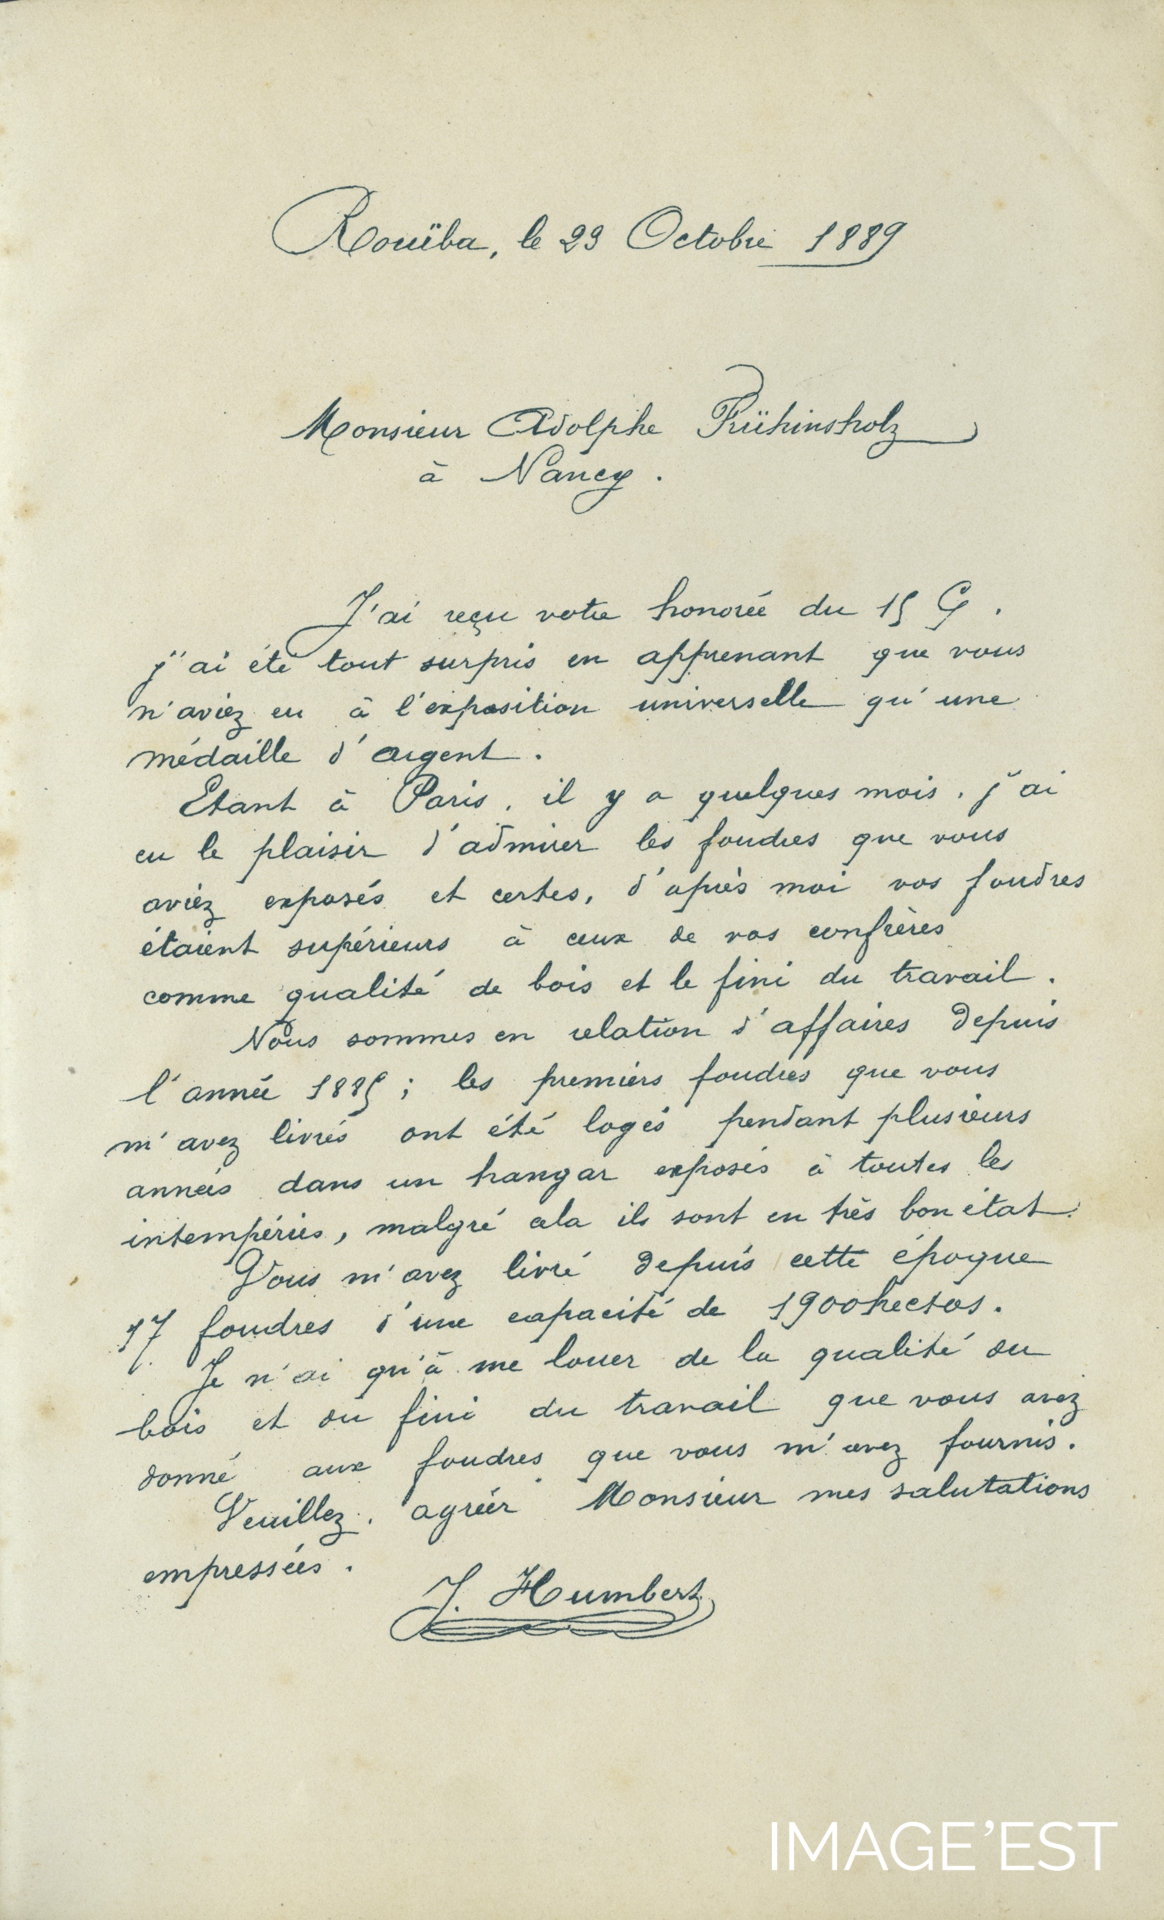 Rouïba, le 23 Octobre 1889
Monsieur Adolphe Frühinsholz
à Nancy.
J'ai reçu votre honorée du 15 Ct.
j'ai été tout surpris en apprenant que vous
n'aviez eu à l'exposition universelle qu'une
médaille d'argent.
Etant à Paris, il y a quelques mois, j'ai
eu le plaisir d'admirer les foudres que vous
aviez exposés et certes, d'après moi vos foudres
étaient supérieurs à ceux de vos confrères
comme qualité de bois et le fini du travail.
Nous sommes en relation d'affaires depuis
l'année 1885; les premiers foudres que vous
m'avez livrés ont été logés pendant plusieurs
années dans un hangar exposés à toutes les
intempéries, malgré cela ils sont en très bon état.
Vous m'avez livré depuis cette époque
17 foudres d'une capacité de 1900 hectos.
Je n'ai qu'à me louer de la qualité du
bois et du fini du travail que vous avez
donné aux foudres que vous m'avez fournis.
Veuillez, agréer Monsieur mes salutations
empressées.
J. Humbert
IMAGE'EST